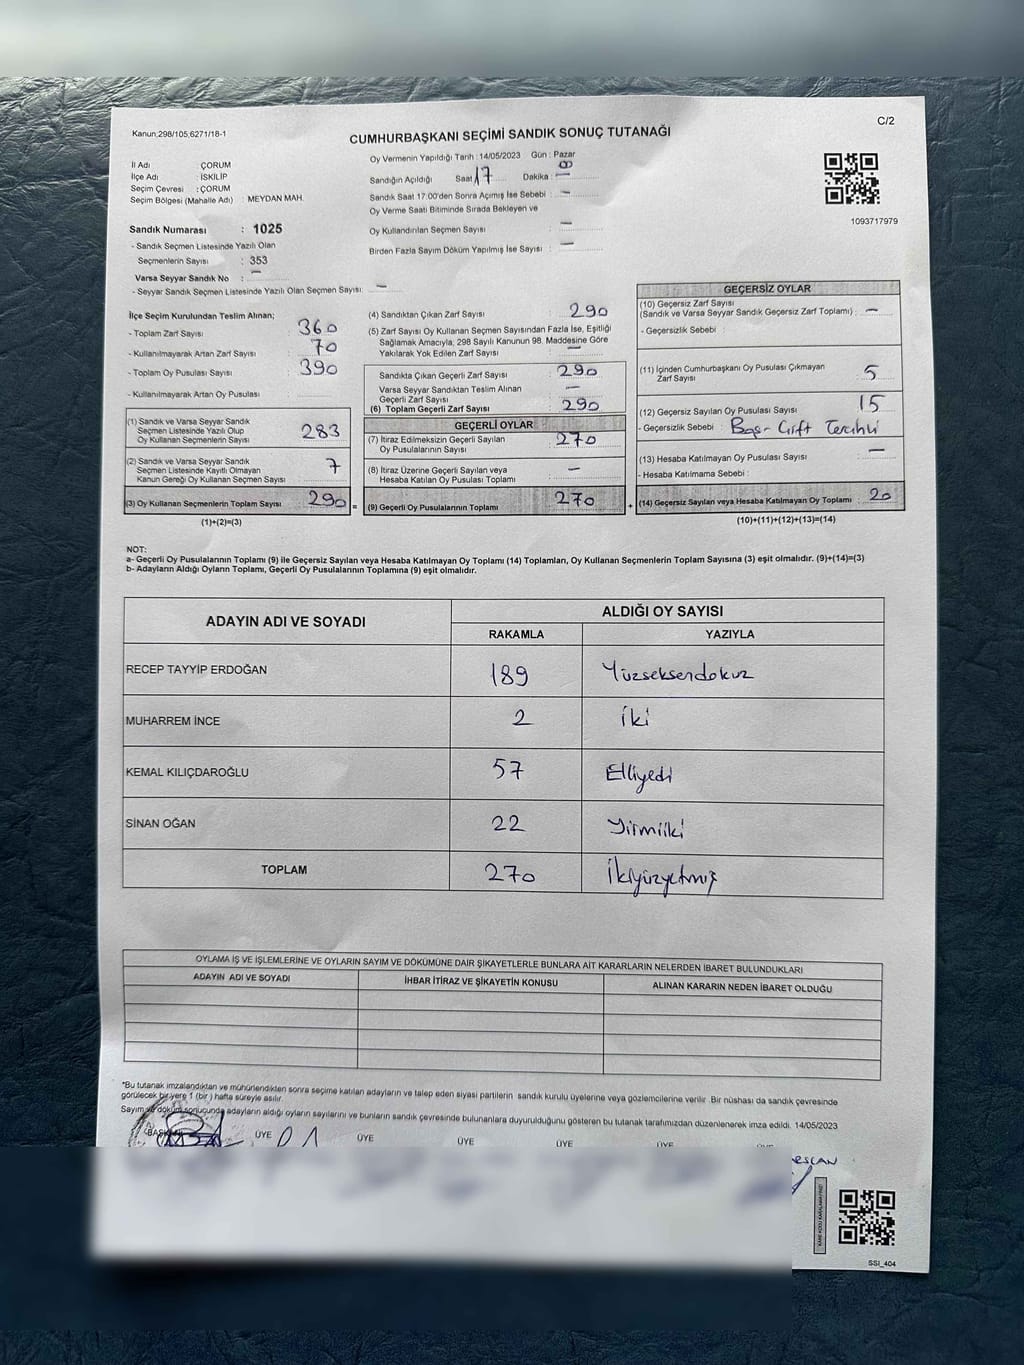 Kanun,298/105,6271/18-1
C/2
CUMHURBAŞKANI SEÇİMİ SANDIK SONUÇ TUTANAĞI
İl Adı : ÇORUM
İlçe Adı : İSKİLİP
Seçim Çevresi : ÇORUM
Seçim Bölgesi (Mahalle Adı) : MEYDAN MAH.
Sandık Numarası : 1025
- Sandık Seçmen Listesinde Yazılı Olan
Seçmenlerin Sayısı : 353
Varsa Seyyar Sandık No : —
- Seyyar Sandık Seçmen Listesinde Yazılı Olan Seçmen Sayısı: —
Oy Vermenin Yapıldığı Tarih : 14/05/2023 Gün : Pazar
Sandığın Açıldığı Saat 17 Dakika : 00
Sandık Saat 17:00'den Sonra Açımış İse Sebebi : —
Oy Verme Saati Bitiminde Sırada Bekleyen ve
Oy Kullandırılan Seçmen Sayısı : —
Birden Fazla Sayım Döküm Yapılmış İse Sayısı : —
1093717979
İlçe Seçim Kurulundan Teslim Alınan;
- Toplam Zarf Sayısı : 360
- Kullanılmayarak Artan Zarf Sayısı : 70
- Toplam Oy Pusulası Sayısı : 390
- Kullanılmayarak Artan Oy Pusulası :
(1) Sandık ve Varsa Seyyar Sandık
Seçmen Listesinde Yazılı Olup
Oy Kullanan Seçmenlerin Sayısı : 283
(2) Sandık ve Varsa Seyyar Sandık
Seçmen Listesinde Kayıtlı Olmayan
Kanun Gereği Oy Kullanan Seçmen Sayısı : 7
(3) Oy Kullanan Seçmenlerin Toplam Sayısı : 290
(1)+(2)=(3)
(4) Sandıktan Çıkan Zarf Sayısı : 290
(5) Zarf Sayısı Oy Kullanan Seçmen Sayısından Fazla İse, Eşitliği
Sağlamak Amacıyla, 298 Sayılı Kanunun 98. Maddesine Göre
Yakılarak Yok Edilen Zarf Sayısı : —
Sandıkta Çıkan Geçerli Zarf Sayısı : 290
Varsa Seyyar Sandıktan Teslim Alınan
Geçerli Zarf Sayısı : —
(6) Toplam Geçerli Zarf Sayısı : 290
GEÇERLİ OYLAR
(7) İtiraz Edilmeksizin Geçerli Sayılan
Oy Pusulalarının Sayısı : 270
(8) İtiraz Üzerine Geçerli Sayılan veya
Hesaba Katılan Oy Pusulası Toplamı : —
(9) Geçerli Oy Pusulalarının Toplamı : 270
GEÇERSİZ OYLAR
(10) Geçersiz Zarf Sayısı
(Sandık ve Varsa Seyyar Sandık Geçersiz Zarf Toplamı) : —
- Geçersizlik Sebebi :
(11) İçinden Cumhurbaşkanı Oy Pusulası Çıkmayan
Zarf Sayısı : 5
(12) Geçersiz Sayılan Oy Pusulası Sayısı : 15
- Geçersizlik Sebebi : Boş - Çift Tercihli
(13) Hesaba Katılmayan Oy Pusulası Sayısı : —
- Hesaba Katılmama Sebebi :
(14) Geçersiz Sayılan veya Hesaba Katılmayan Oy Toplamı : 20
(10)+(11)+(12)+(13)=(14)
NOT:
a- Geçerli Oy Pusulalarının Toplamı (9) ile Geçersiz Sayılan veya Hesaba Katılmayan Oy Toplamı (14) Toplamları, Oy Kullanan Seçmenlerin Toplam Sayısına (3) eşit olmalıdır. (9)+(14)=(3)
b- Adayların Aldığı Oyların Toplamı, Geçerli Oy Pusulalarının Toplamına (9) eşit olmalıdır.
ADAYIN ADI VE SOYADI
ALDIĞI OY SAYISI
RAKAMLA YAZIYLA
RECEP TAYYİP ERDOĞAN 189 Yüzseksendokuz
MUHARREM İNCE 2 İki
KEMAL KILIÇDAROĞLU 57 Elliyedi
SİNAN OĞAN 22 Yirmiiki
TOPLAM 270 İkiyüzyetmiş
OYLAMA İŞ VE İŞLEMLERİNE VE OYLARIN SAYIM VE DÖKÜMÜNE DAİR ŞİKAYETLERLE BUNLARA AİT KARARLARIN NELERDEN İBARET BULUNDUKLARI
ADAYIN ADI VE SOYADI İHBAR İTİRAZ VE ŞİKAYETİN KONUSU ALINAN KARARIN NEDEN İBARET OLDUĞU
*Bu tutanak imzalandıktan ve mühürlendikten sonra seçime katılan adayların ve talep eden siyasi partilerin sandık kurulu üyelerine veya gözlemcilerine verilir. Bir nüshası da sandık çevresinde
görülecek bir yere 1 (bir) hafta süreyle asılır.
Sayım ve döküm sonucunda adayların aldığı oyların sayılarını ve bunların sandık çevresinde bulunanlara duyurulduğunu gösteren bu tutanak tarafımızdan düzenlenerek imza edildi. 14/05/2023
BAŞKAN ÜYE ÜYE ÜYE ÜYE ÜYE
SSI_404